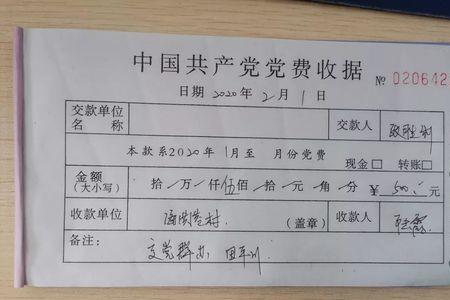 中国共产党党费收据
№ 020642
日期 2020 年 2 月 1 日
交款单位名称 交款人
本款系2020年 1月至 月份党费 现金□ 转账□
金额(大小写) 拾 万 仟 伍佰 拾 元 角 分 ¥ 500.
收款单位 村. (盖章) 收款人
备注:
交党群办